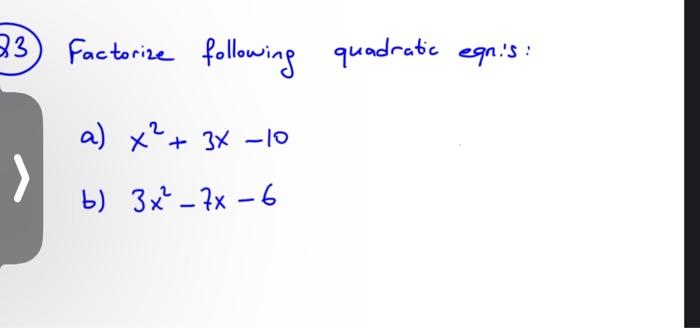 Q3 Factorize following quadratic eqn.'s:
a) x² + 3x - 10
b) 3x² - 7x - 6